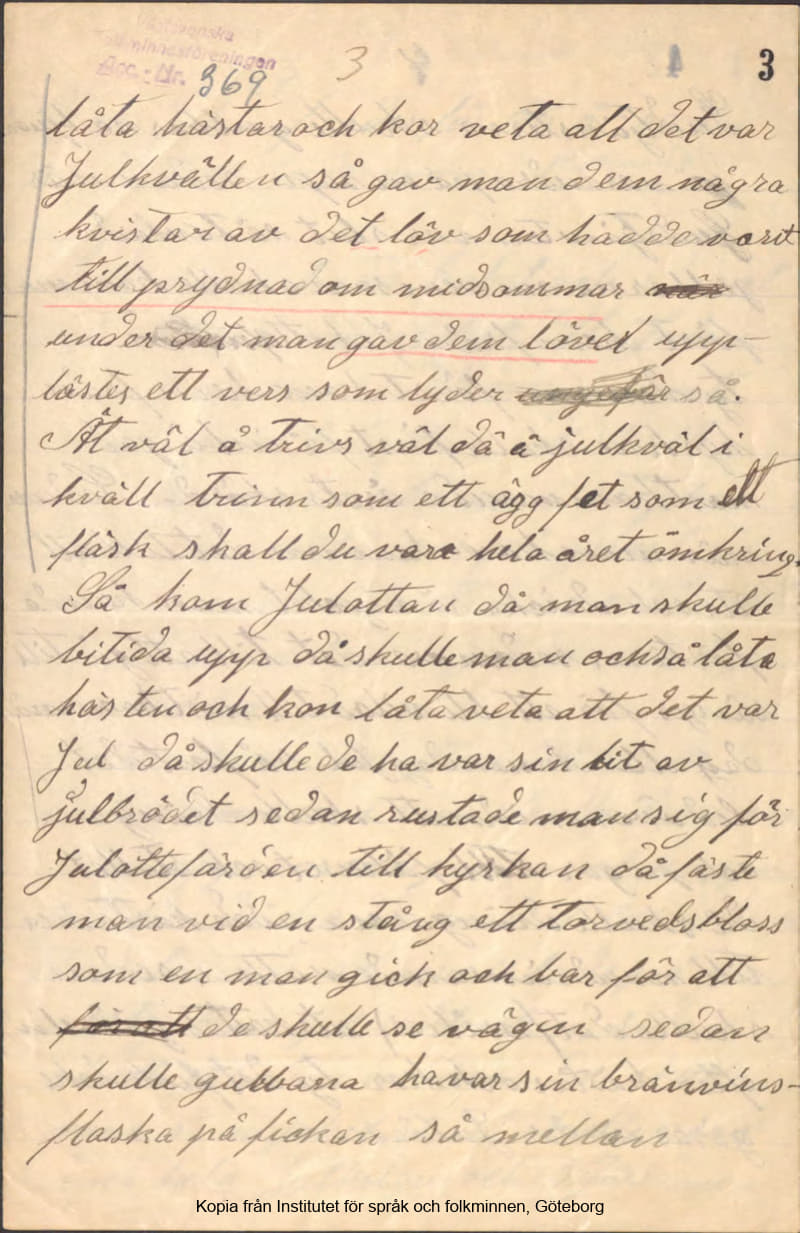 Västsvenska
Folkminnesföreningen
Acc.-Nr. 369
3
3
låta hästar och kor veta all det var
Julkvällen så gav man dem några
kvistar av det löv som hadde varit
till prydnad om midsommar när
under det man gav dem lövet upp-
lästes ett vers som lyder ungefär så.
Ät väl å trivs väl dä ä julkväl i
kväll trinn som ett ägg fet som ett
fläsk skall du vara hela året ömkring.
Så kom Julottan då man skulle
bitida upp då skulle man ochså låta
hästen och kon låta veta att det var
Jul då skulle de ha var sin bit av
julbrödet sedan rustade man sig för
Julottefärden till kyrkan då fäste
man vid en stång ett torvedsbloss
som en man gick och bar för att
för att de skulle se vägen sedan
skulle gubbana ha var sin bränvins-
flaska på fickan så mellan
Kopia från Institutet för språk och folkminnen, Göteborg